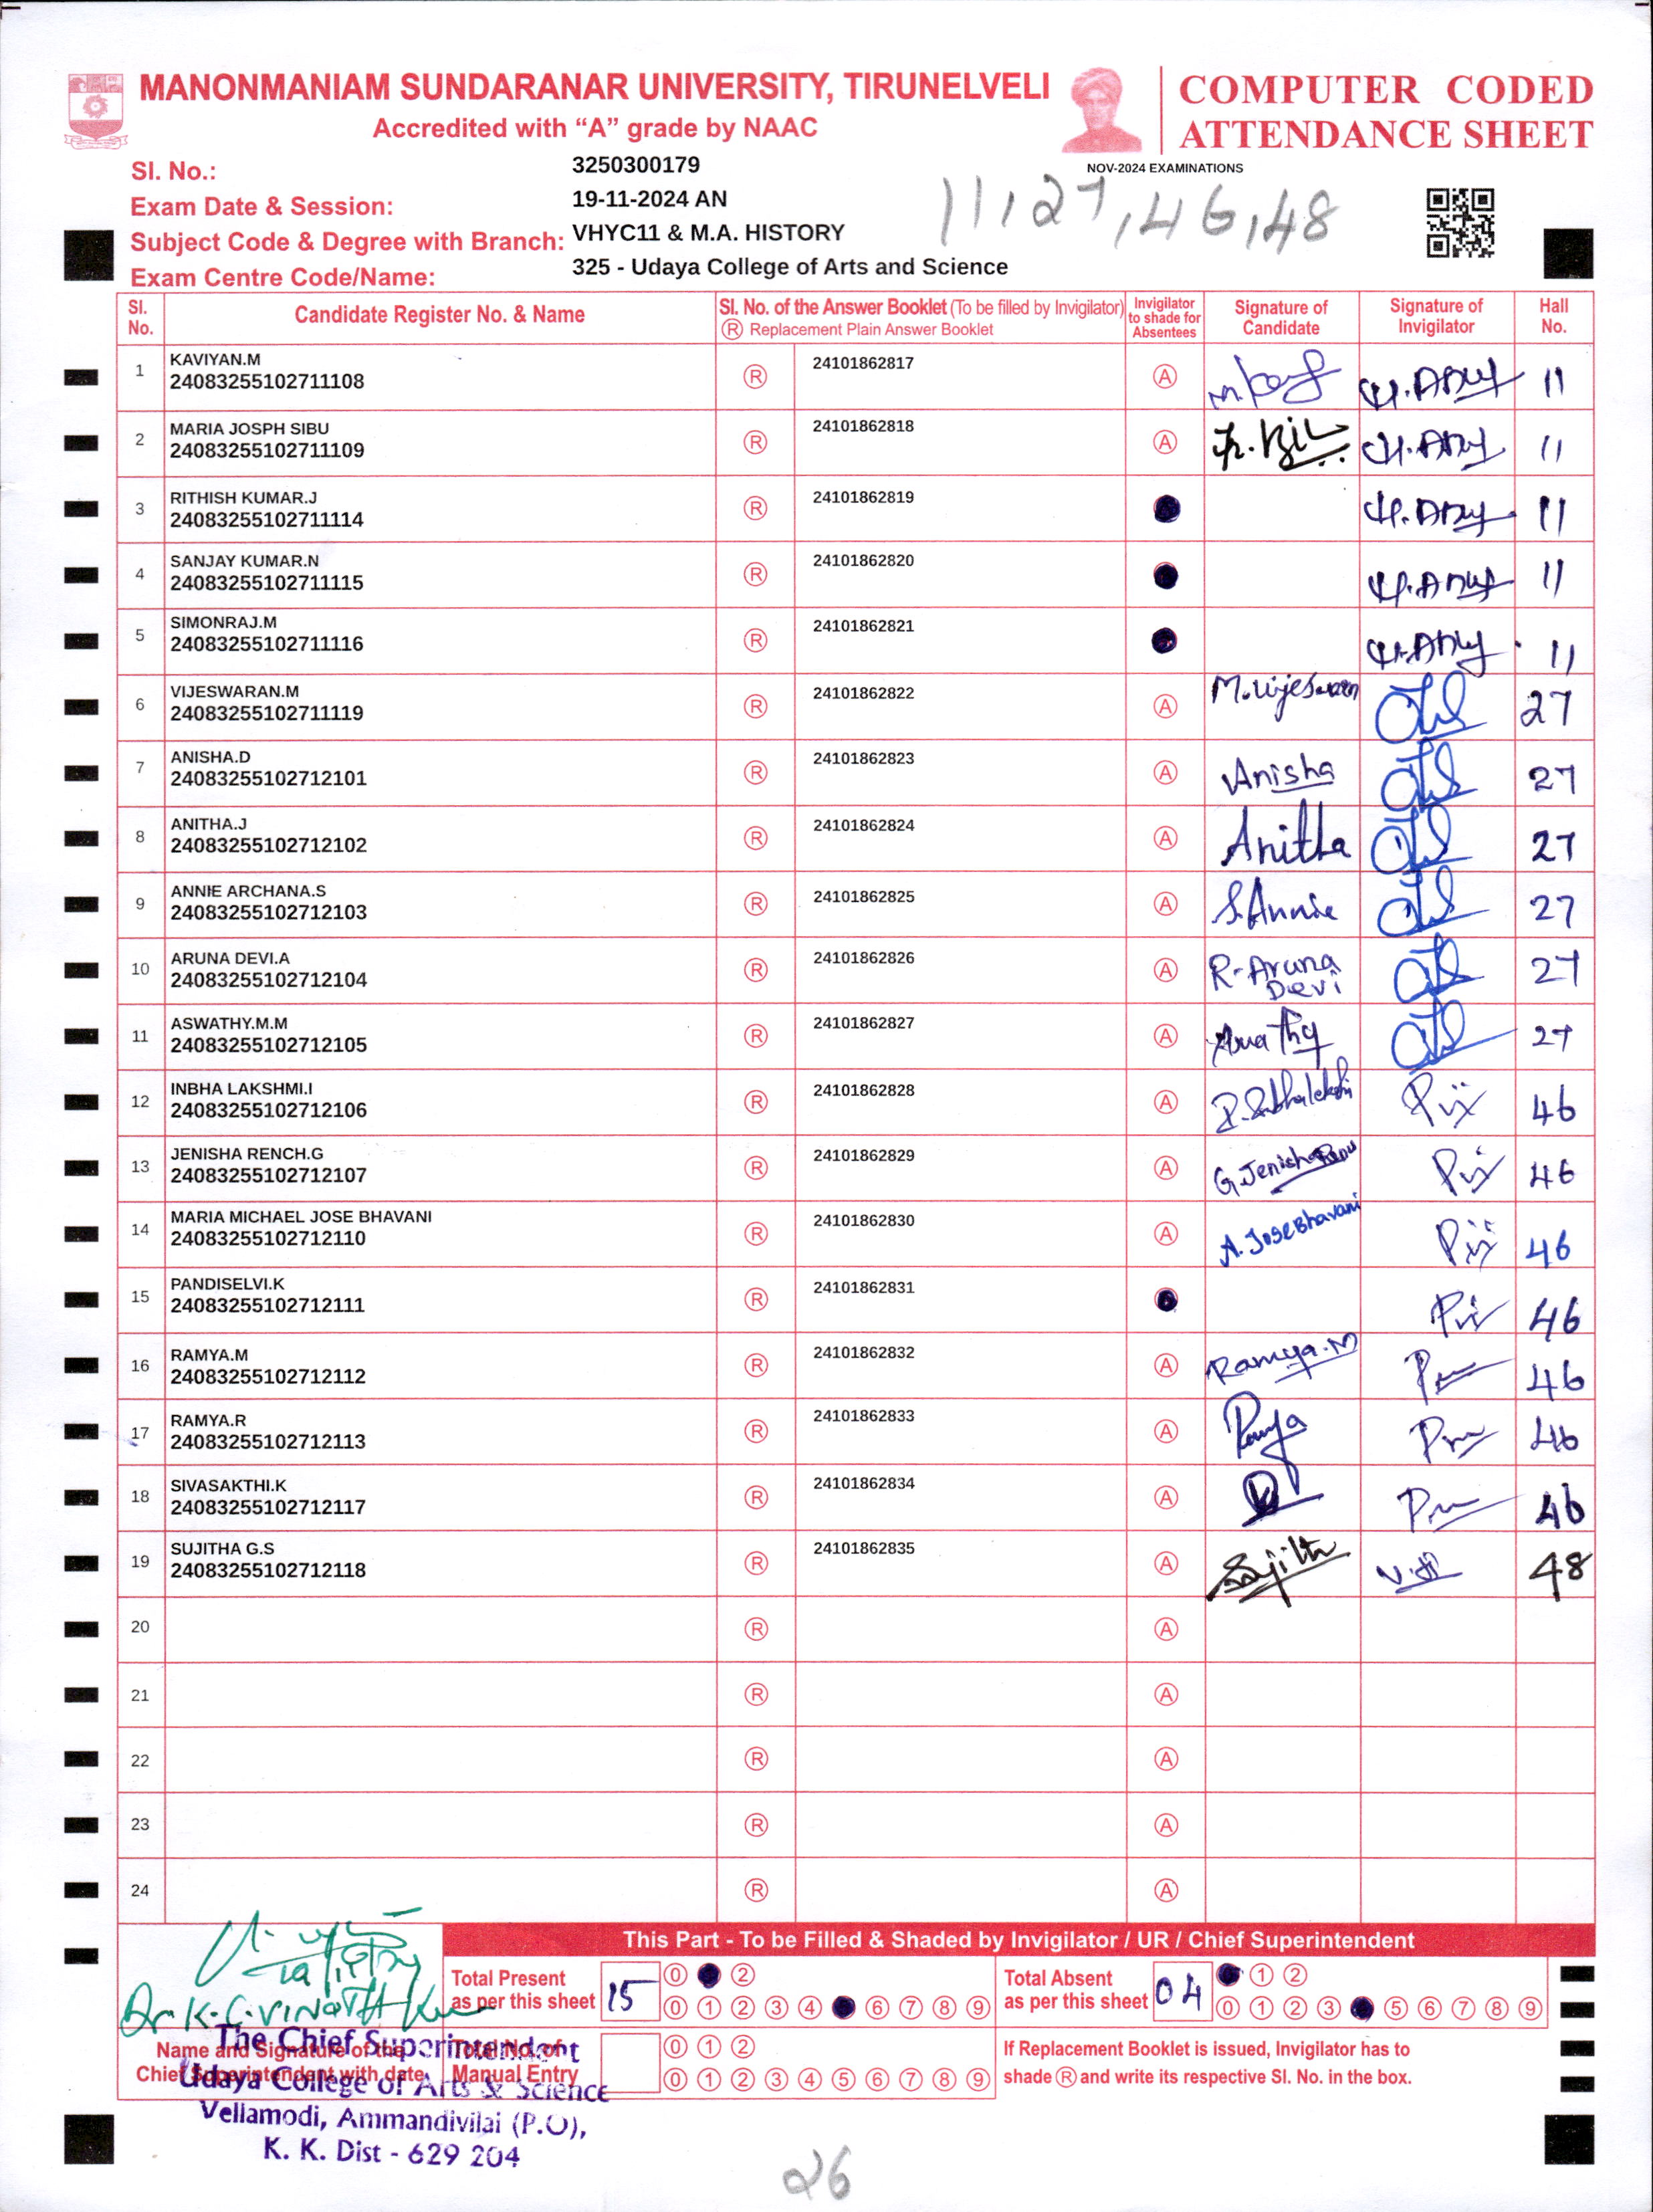 MANONMANIAM SUNDARANAR UNIVERSITY, TIRUNELVELI
Accredited with “A” grade by NAAC
COMPUTER CODED
ATTENDANCE SHEET
NOV-2024 EXAMINATIONS
Sl. No.: 3250300179
Exam Date & Session: 19-11-2024 AN
Subject Code & Degree with Branch: VHYC11 & M.A. HISTORY
Exam Centre Code/Name: 325 - Udaya College of Arts and Science
11,27,46,48
Sl. No. Candidate Register No. & Name Sl. No. of the Answer Booklet (To be filled by Invigilator) Ⓡ Replacement Plain Answer Booklet Invigilator to shade for Absentees Signature of Candidate Signature of Invigilator Hall No.
1 KAVIYAN.M 24083255102711108 Ⓡ 24101862817 Ⓐ 11
2 MARIA JOSPH SIBU 24083255102711109 Ⓡ 24101862818 Ⓐ 11
3 RITHISH KUMAR.J 24083255102711114 Ⓡ 24101862819 11
4 SANJAY KUMAR.N 24083255102711115 Ⓡ 24101862820 11
5 SIMONRAJ.M 24083255102711116 Ⓡ 24101862821 11
6 VIJESWARAN.M 24083255102711119 Ⓡ 24101862822 Ⓐ 27
7 ANISHA.D 24083255102712101 Ⓡ 24101862823 Ⓐ Anisha 27
8 ANITHA.J 24083255102712102 Ⓡ 24101862824 Ⓐ Anitha 27
9 ANNIE ARCHANA.S 24083255102712103 Ⓡ 24101862825 Ⓐ S.Annie 27
10 ARUNA DEVI.A 24083255102712104 Ⓡ 24101862826 Ⓐ R-Aruna Devi 27
11 ASWATHY.M.M 24083255102712105 Ⓡ 24101862827 Ⓐ 27
12 INBHA LAKSHMI.I 24083255102712106 Ⓡ 24101862828 Ⓐ 46
13 JENISHA RENCH.G 24083255102712107 Ⓡ 24101862829 Ⓐ G.Jenisha 46
14 MARIA MICHAEL JOSE BHAVANI 24083255102712110 Ⓡ 24101862830 Ⓐ A. JoseBhavani 46
15 PANDISELVI.K 24083255102712111 Ⓡ 24101862831 46
16 RAMYA.M 24083255102712112 Ⓡ 24101862832 Ⓐ Ramya.M 46
17 RAMYA.R 24083255102712113 Ⓡ 24101862833 Ⓐ Ramya 46
18 SIVASAKTHI.K 24083255102712117 Ⓡ 24101862834 Ⓐ 46
19 SUJITHA G.S 24083255102712118 Ⓡ 24101862835 Ⓐ 48
20 Ⓡ Ⓐ
21 Ⓡ Ⓐ
22 Ⓡ Ⓐ
23 Ⓡ Ⓐ
24 Ⓡ Ⓐ
This Part - To be Filled & Shaded by Invigilator / UR / Chief Superintendent
Total Present as per this sheet 15
0 2
0 1 2 3 4 6 7 8 9
Total Absent as per this sheet 04
1 2
0 1 2 3 5 6 7 8 9
Total No. of Manual Entry
0 1 2
0 1 2 3 4 5 6 7 8 9
If Replacement Booklet is issued, Invigilator has to
shade Ⓡ and write its respective Sl. No. in the box.
Name and Signature of the
Chief Superintendent with date
The Chief Superintendent
Udaya College of Arts & Science
Vellamodi, Ammandivilai (P.O),
K. K. Dist - 629 204
26